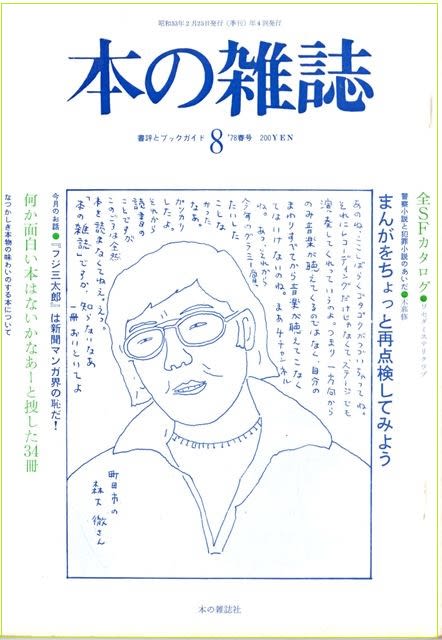 昭和53年2月25日発行(季刊)年4回発行
本の雑誌
書評とブックガイド 8 '78春号 200YEN
全SFカタログ●ワセダミステリクラブ
警察小説と犯罪小説のあいだ●
まんがをちょっと再点検してみよう
あのね、ここしばらくコタゴタがつづいちゃってね。
それにレコーディングだけじゃなくてステージでも
演奏してくれっていうのよ。つまり一方向から
のみ音楽が聴えてくるのではなく、自分の
まわりすべてから音楽が聴えてこなく
てはいけないのね。まあ4チャンネル
ね。あっ、それから
今年のグラミー賞
たいした
ことな
かった
なあ。
ガッカリ
したよ。
それから
読書の
ことですが
このごろは全然
本を読まなくてねえ。えっ?
「本の雑誌」ですか、知らないなあ
一冊おいといてよ
町田市の
森 徹さん
今月のお話●『フジ三太郎』は新聞マンガ界の恥だ!
何か面白い本はないかなあーと捜した34冊
なつかしき本物の味わいのする本について
本の雑誌社